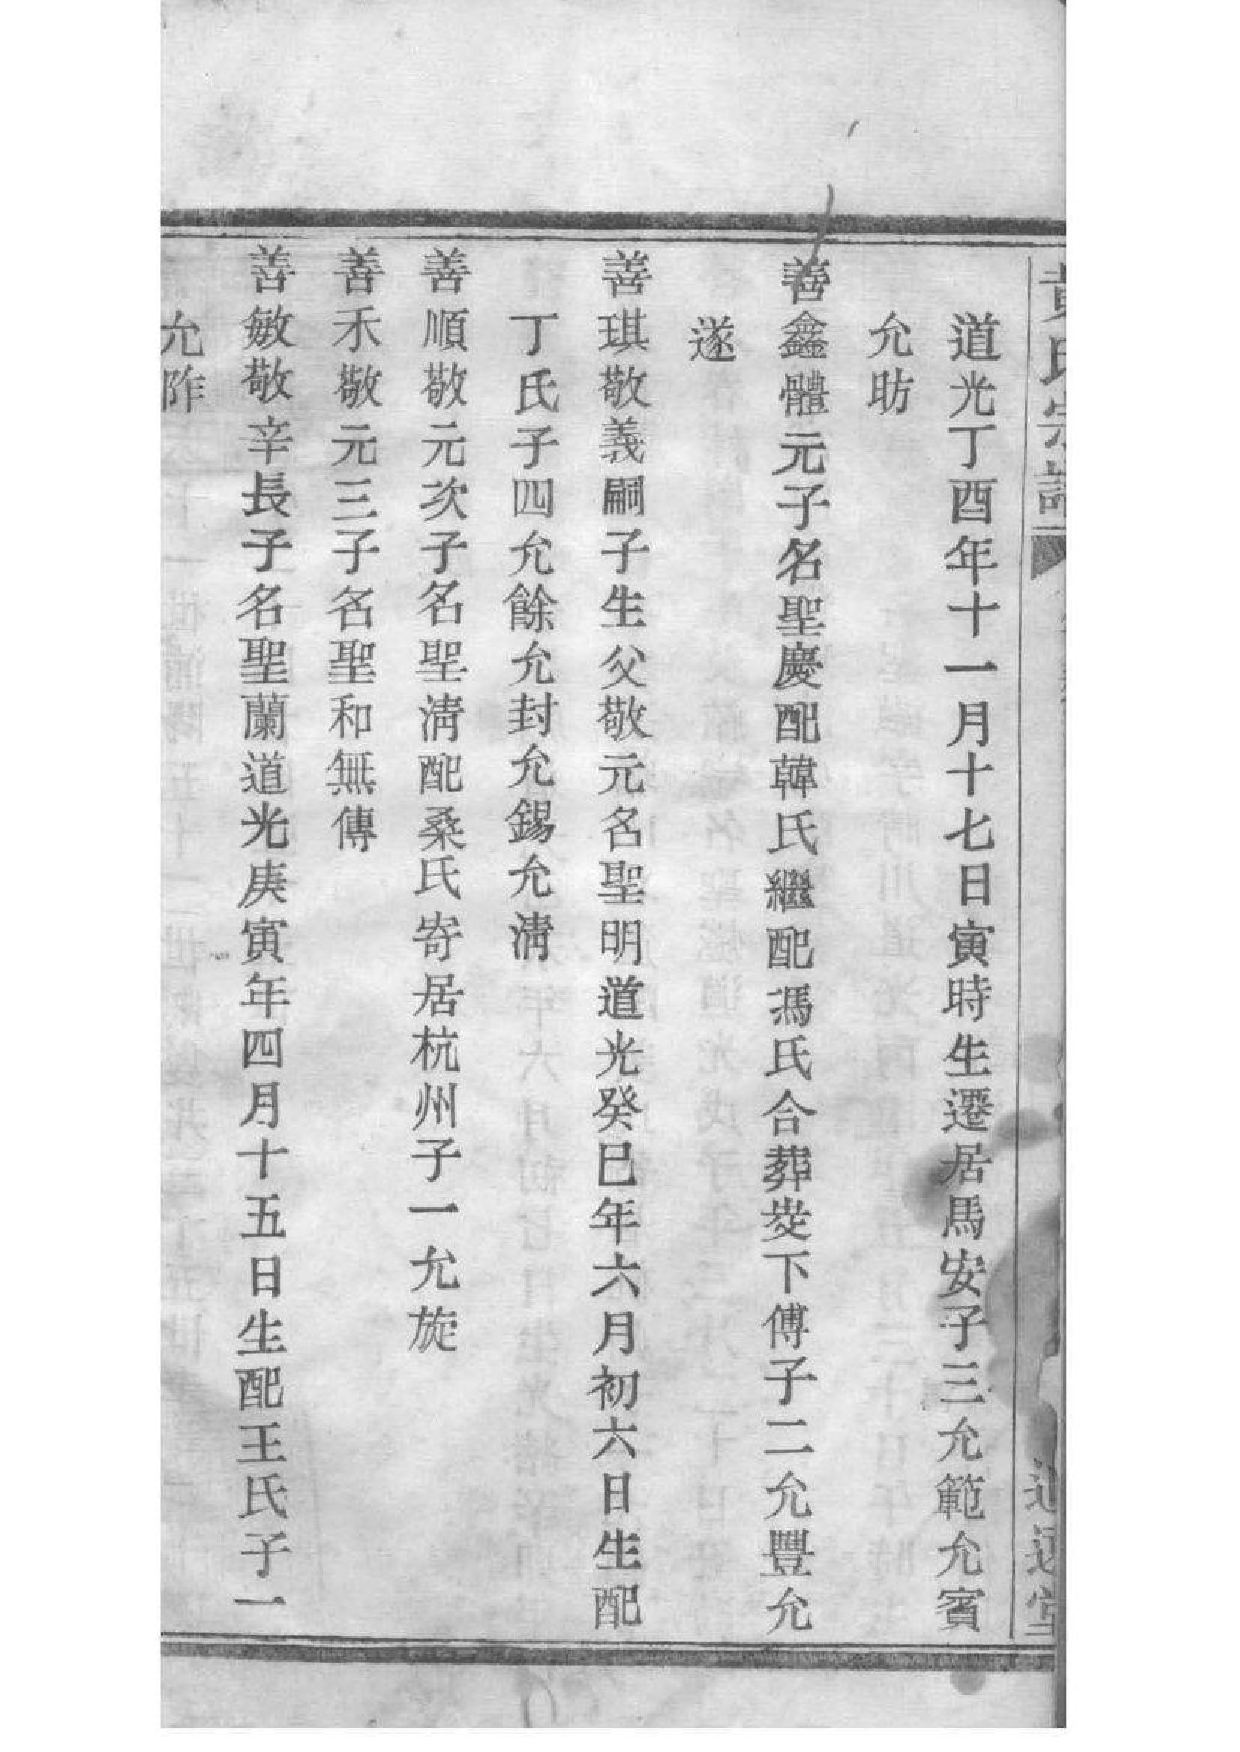 黄氏宗譜
追遠堂
道光丁酉年十一月十七日寅時生遷居馬安子三允範允賓
允昉
善鑫體元子名聖慶配韓氏繼配馮氏合葬㘰下傅子二允豐允
遂
善琪敬義嗣子生父敬元名聖明道光癸巳年六月初六日生配
丁氏子四允餘允封允錫允淸
善順敬元次子名聖淸配桑氏寄居杭州子一允旋
善禾敬元三子名聖和無傳
善敏敬辛長子名聖蘭道光庚寅年四月十五日生配王氏子一
允阼